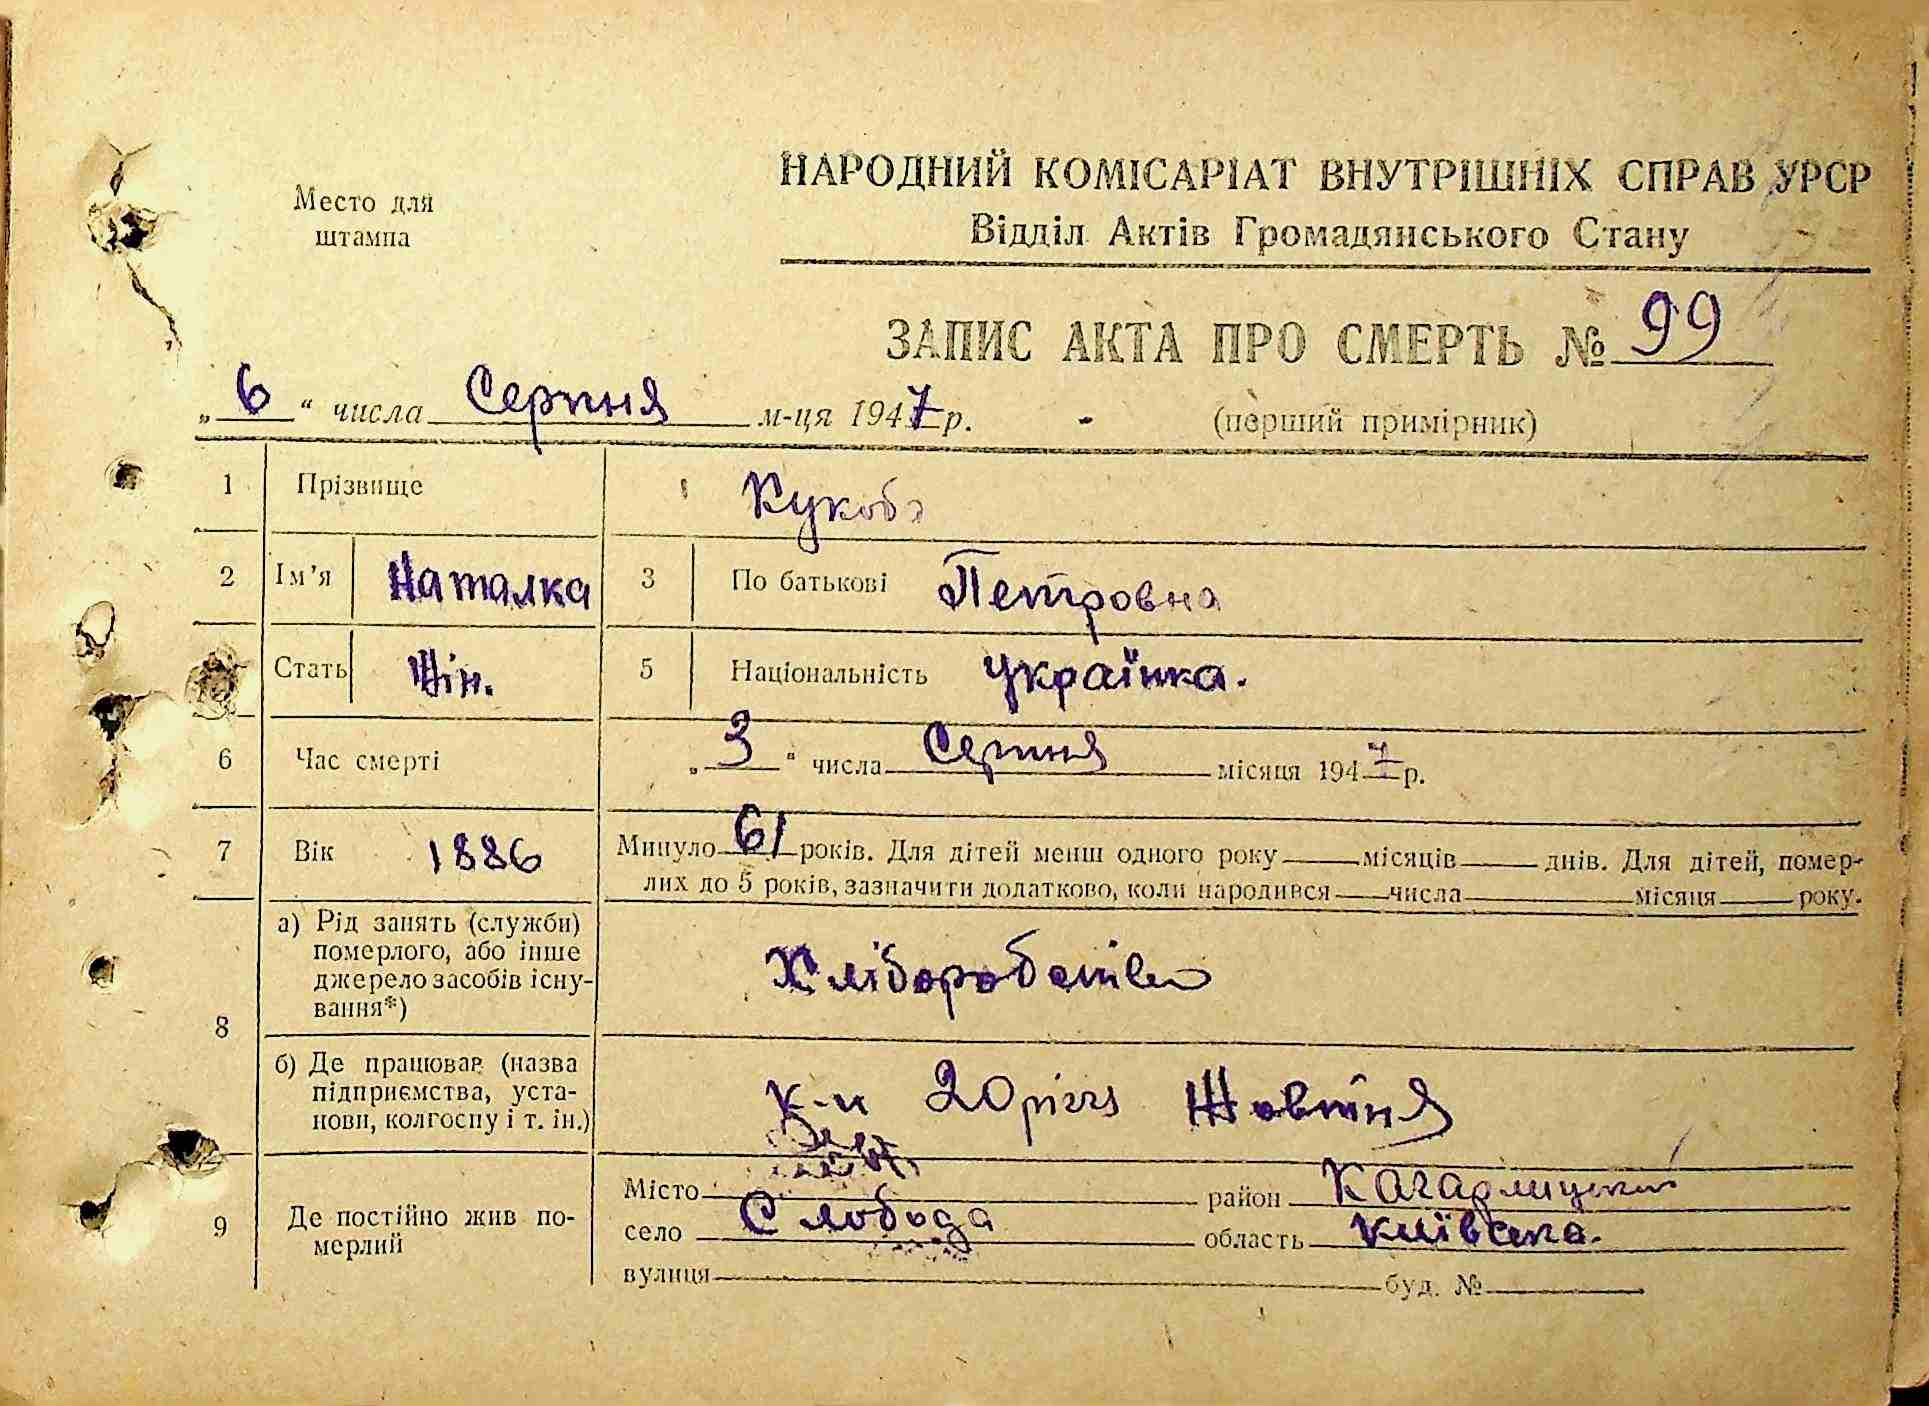 Место для
штампа
НАРОДНИЙ КОМІСАРІАТ ВНУТРІШНІХ СПРАВ УРСР
Відділ Актів Громадянського Стану
ЗАПИС АКТА ПРО СМЕРТЬ № 99
„6“ числа Серпня м-ця 1947 р.
(перший примірник)
1 Прізвище Кукоба
2 Ім'я Наталка 3 По батькові Петровна
Стать Жін. 5 Національність українка.
6 Час смерті „3“ числа Серпня місяця 1947 р.
7 Вік 1886 Минуло 61 років. Для дітей менш одного року місяців днів. Для дітей, помер-
лих до 5 років, зазначити додатково, коли народився числа місяця року.
8 а) Рід занять (служби)
померлого, або інше
джерело засобів існу-
вання*)
Хліборобство
б) Де працював (назва
підприємства, уста-
нови, колгоспу і т. ін.)
к-п 20річчя Жовтня
9 Де постійно жив по-
мерлий
Місто район Кагарлицький
село Слобода область Київська.
вулиця буд. №